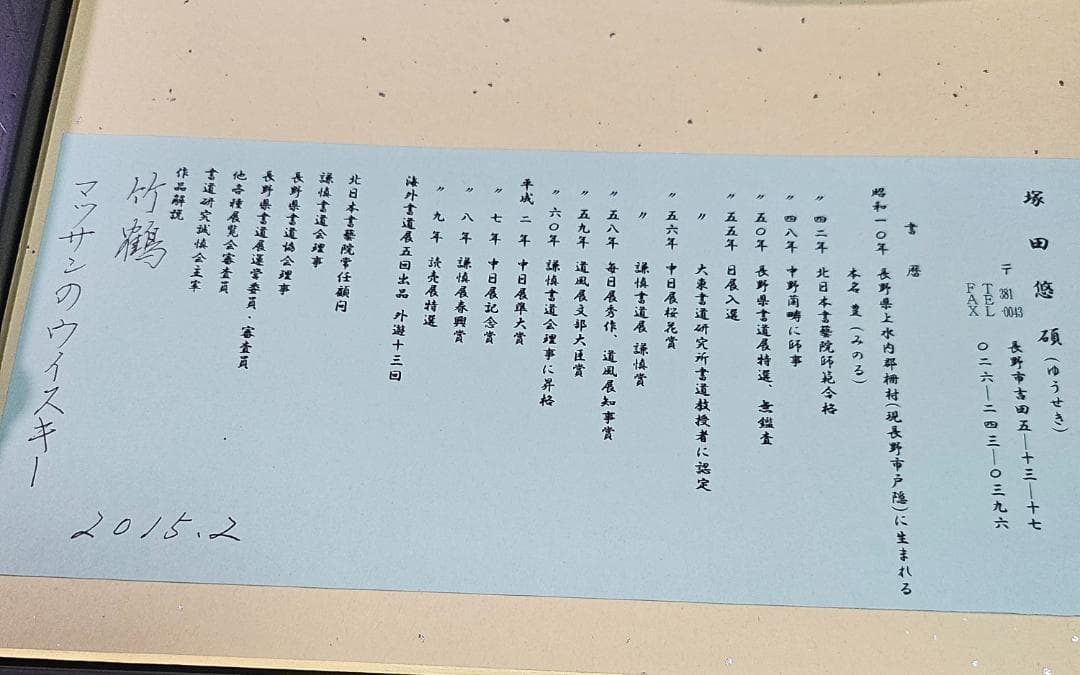 塚田悠碩(ゆうせき)
〒381-0043 長野市吉田五―十三―十七
TEL
FAX 〇二六―二四三―〇三九六
書暦
昭和一〇年 長野県上水内郡柵村(現長野市戸隠)に生まれる
本名 豊(みのる)
〃 四二年 北日本書藝院師範合格
〃 四八年 中野蘭疇に師事
〃 五〇年 長野県書道展特選、無鑑査
〃 五五年 日展入選
〃 大東書道研究所書道教授者に認定
〃 五六年 中日展桜花賞
〃 謙慎書道展 謙慎賞
〃 五八年 毎日展秀作、道風展知事賞
〃 五九年 道風展文部大臣賞
〃 六〇年 謙慎書道会理事に昇格
平成 二年 中日展準大賞
〃 七年 中日展記念賞
〃 八年 謙慎展春興賞
〃 九年 読売展特選
海外書道展五回出品 外遊十三回
北日本書藝院常任顧問
謙慎書道会理事
長野県書道協会理事
長野県書道展運営委員、審査員
他各種展覧会審査員
書道研究誠慎会主宰
作品解説
竹鶴
マッサンのウイスキー
2015.2